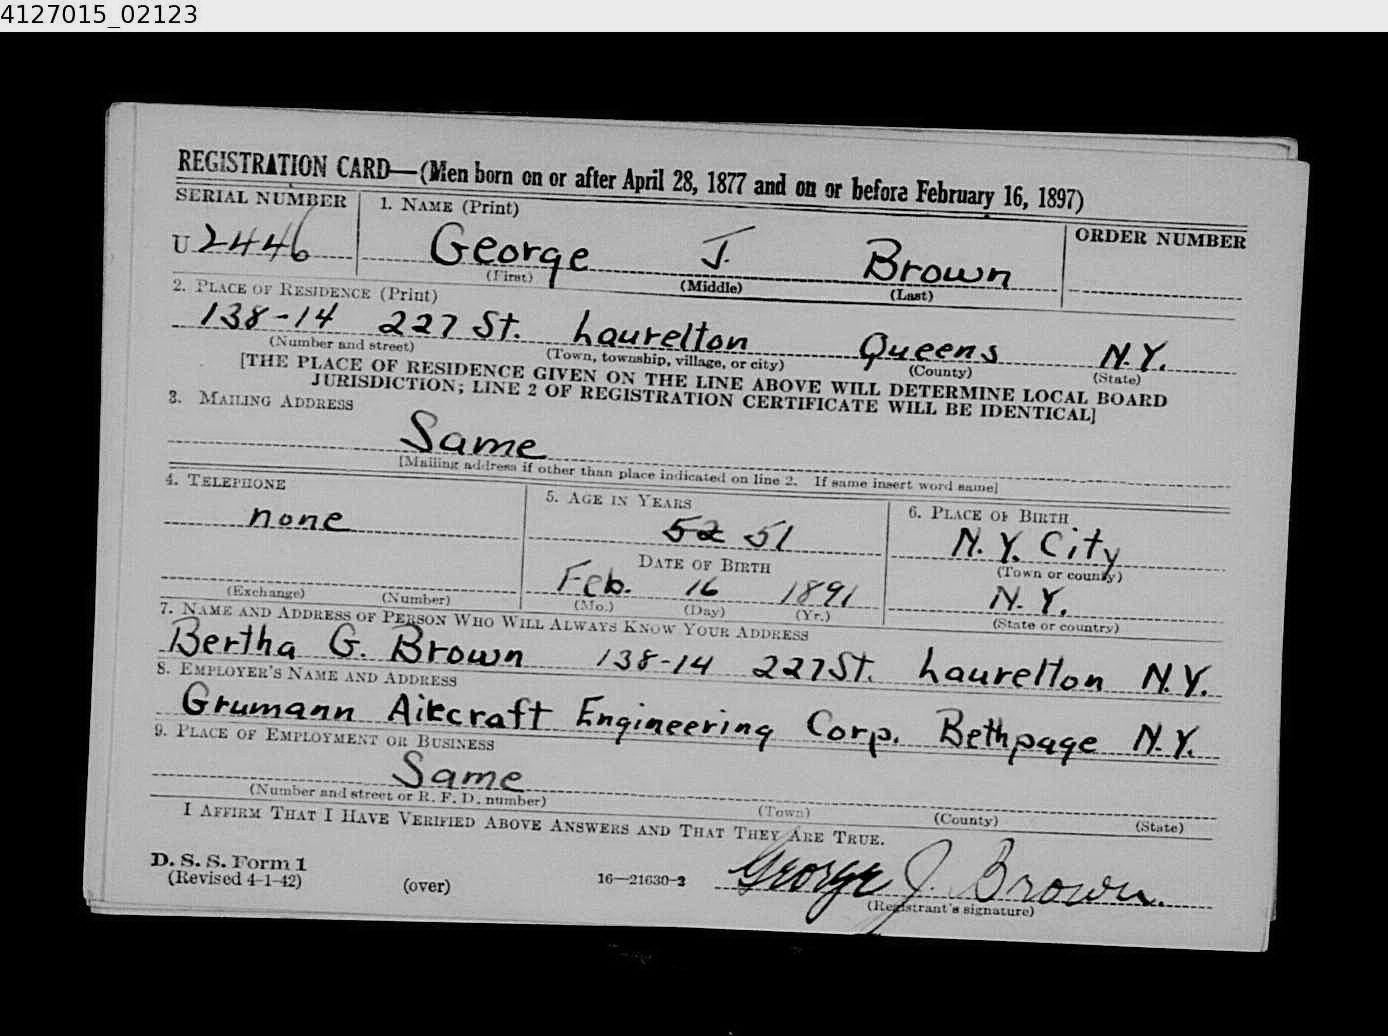 4127015_02123
REGISTRATION CARD—(Men born on or after April 28, 1877 and on or before February 16, 1897)
SERIAL NUMBER 1. NAME (Print) ORDER NUMBER
U 2446 George J. Brown
(First) (Middle) (Last)
2. PLACE OF RESIDENCE (Print)
138-14 227 St. Laurelton Queens N.Y.
(Number and street) (Town, township, village, or city) (County) (State)
[THE PLACE OF RESIDENCE GIVEN ON THE LINE ABOVE WILL DETERMINE LOCAL BOARD
JURISDICTION; LINE 2 OF REGISTRATION CERTIFICATE WILL BE IDENTICAL]
3. MAILING ADDRESS
Same
[Mailing address if other than place indicated on line 2. If same insert word same]
4. TELEPHONE 5. AGE IN YEARS 6. PLACE OF BIRTH
none 52 51 N.Y. City
DATE OF BIRTH (Town or county)
Feb. 16 1891 N.Y.
(Exchange) (Number) (Mo.) (Day) (Yr.) (State or country)
7. NAME AND ADDRESS OF PERSON WHO WILL ALWAYS KNOW YOUR ADDRESS
Bertha G. Brown 138-14 227 St. Laurelton N.Y.
8. EMPLOYER'S NAME AND ADDRESS
Grumann Aircraft Engineering Corp. Bethpage N.Y.
9. PLACE OF EMPLOYMENT OR BUSINESS
Same
(Number and street or R. F. D. number) (Town) (County) (State)
I AFFIRM THAT I HAVE VERIFIED ABOVE ANSWERS AND THAT THEY ARE TRUE.
D. S. S. Form 1
(Revised 4-1-42) (over) 16—21630-2 George J. Brown.
(Registrant's signature)